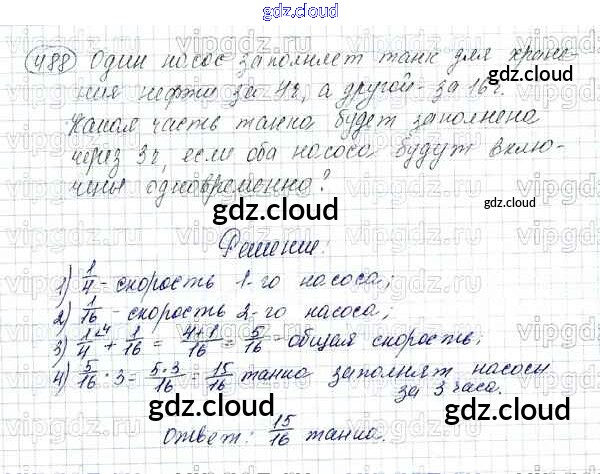 gdz.cloud
488 Один насос заполняет танк для хране-
ния нефти за 4ч, а другой - за 16ч.
Какая часть танка будет заполнена
через 3ч, если оба насоса будут вклю-
чены одновременно?
gdz.cloud
Решение:
1) 1/4 - скорость 1-го насоса;
2) 1/16 - скорость 2-го насоса;
3) 1/4 \4 + 1/16 = 4+1/16 = 5/16 - общая скорость;
4) 5/16 · 3 = 5·3/16 = 15/16 танка заполнят насосы
за 3 часа.
gdz.cloud gdz.cloud
Ответ: 15/16 танка.
gdz.cloud